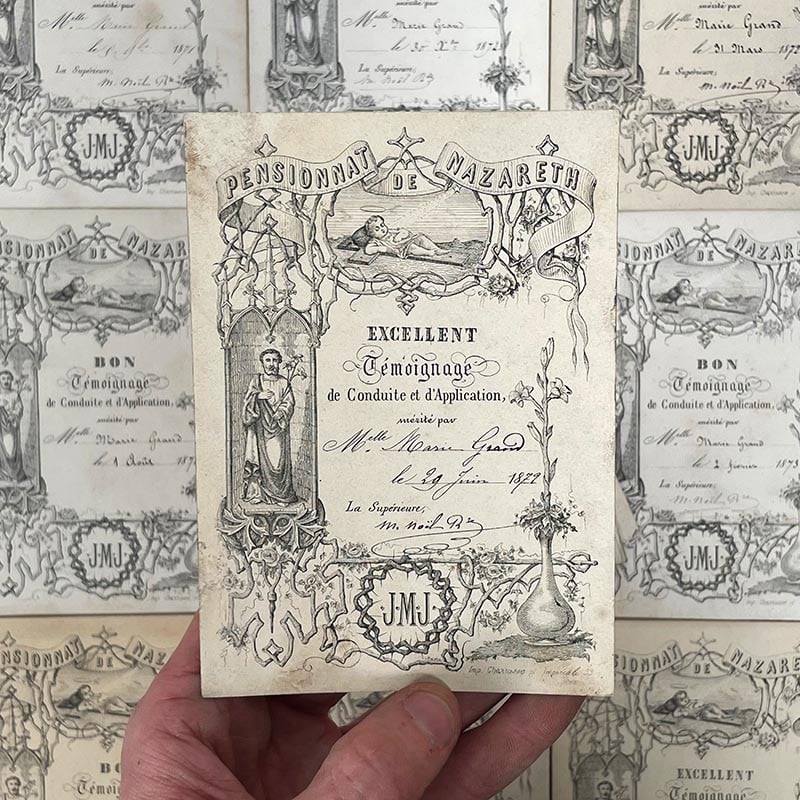 mérité par
Melle Marie Grand
1871
La Supérieure,
m. noël Rse
J.M.J
mérité par
Melle Marie Grand
le 30 Xbre 1872
La Supérieure,
m. noël Rse
mérité par
Melle Marie Grand
le 31 Mars 1872
La Supérieure,
m. noël Rse
J.M.J
PENSIONNAT DE NAZARETH
EXCELLENT
Témoignage
de Conduite et d'Application,
mérité par
Melle Marie Grand
le 29 Juin 1872
La Supérieure,
m. noël Rse
J.M.J
Imp.
NSIONNAT DE NAZAR
BON
Témoignage
de Conduite et d'Application,
mérité par
Melle Marie Grand
le 1 Août 187
La Supérieure,
J.M.J
NAZARETH
BON
Témoignage
de Conduite et d'Application,
mérité par
Melle Marie Grand
le 2 février 1873
La Supérieure,
m. noël Rse
J.M.J
NSIONNAT DE NAZ
BO
Témoi
PENSIONNAT DE NAZARE
EXCELLENT
Témoignage